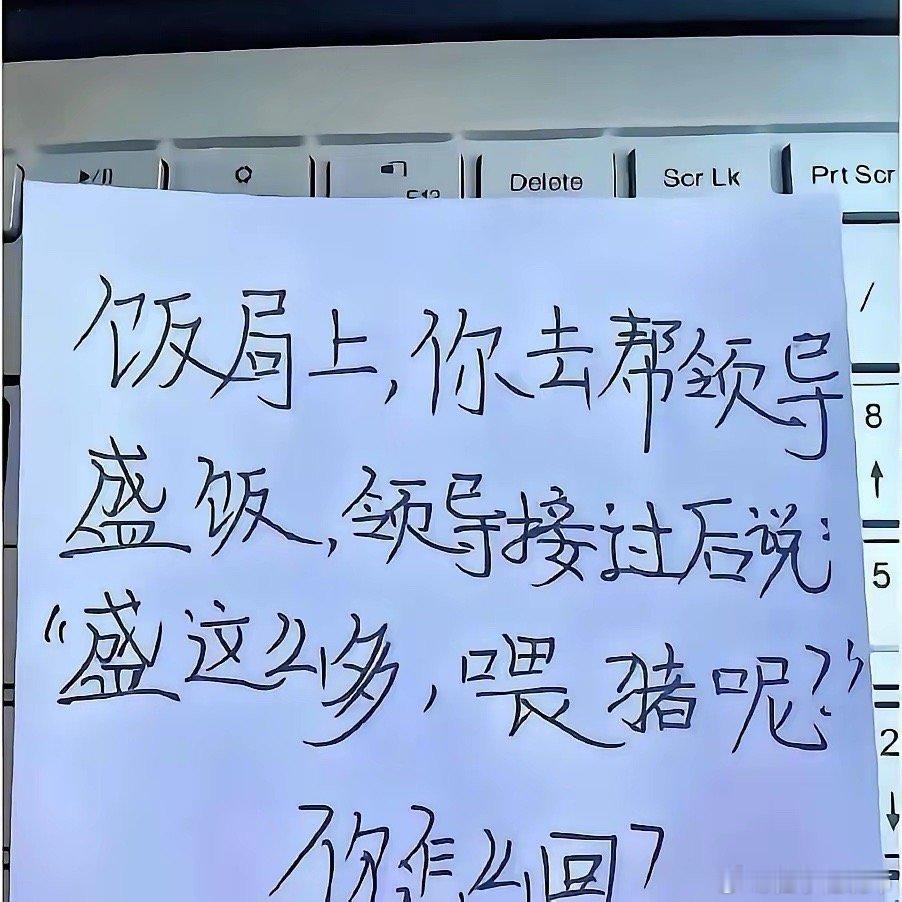 Delete
Scr Lk
Prt Scr
/
8
5
2
饭局上,你去帮领导
盛饭,领导接过后说:
“盛这么多,喂猪呢?”
你怎么回?